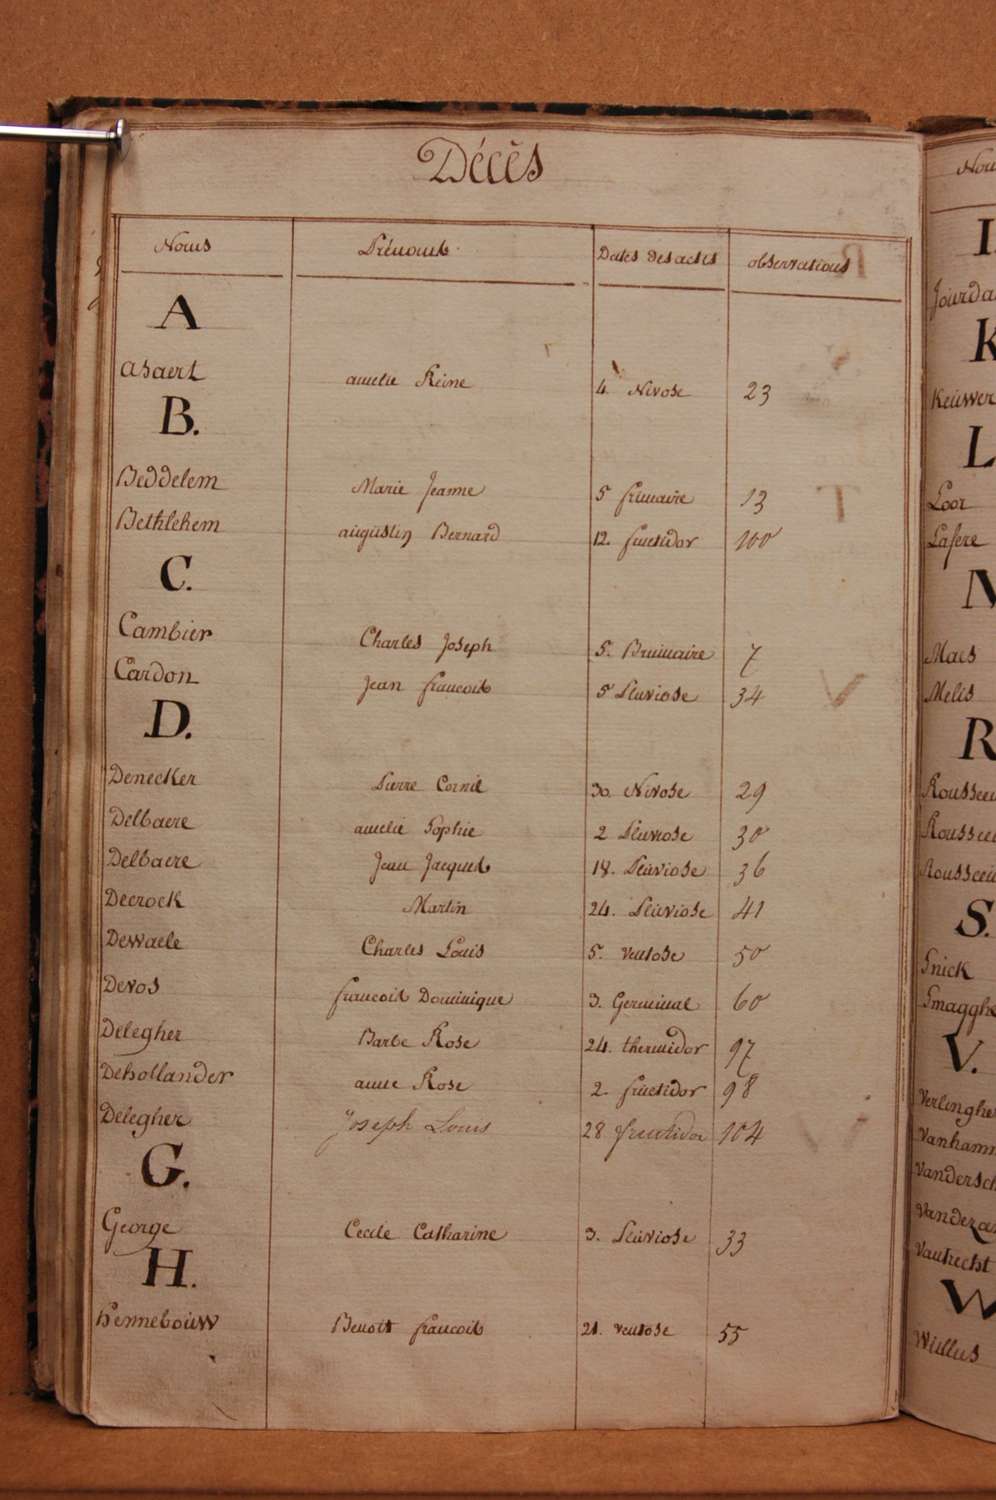 Décès
Noms Prénoms Dates des actes observations
A
Asaert amelie Reine 4. Nivose 23
B.
Beddelem Marie Jeanne 5 frimaire 13
Bethlehem augustin Bernard 12. fructidor 100
C.
Cambier Charles Joseph 5. Brumaire 7
Cardon Jean francois 5 Pluviose 34
D.
Denecker Pierre Cornil 30. Nivose 29
Delbaere amelie Sophie 2 Pluviose 30
Delbaere Jean Jacques 18. Pluviose 36
Decrock Martin 24. Pluviose 41
Dewaele Charles Louis 5. ventose 50
Devos francois Dominique 3. Germinal 60
Delegher Barbe Rose 24. thermidor 97
Dehollander anne Rose 2. fructidor 98
Delegher Joseph Louis 28 fructidor 104
G.
George Cecile Catharine 3. Pluviose 33
H.
hennebouw Benoit francois 21. ventose 55
K
Keuwer
L
Loor
Lafere
Maes
Melis
R
S.
Snick
Smagghe
V.
W
Wullus